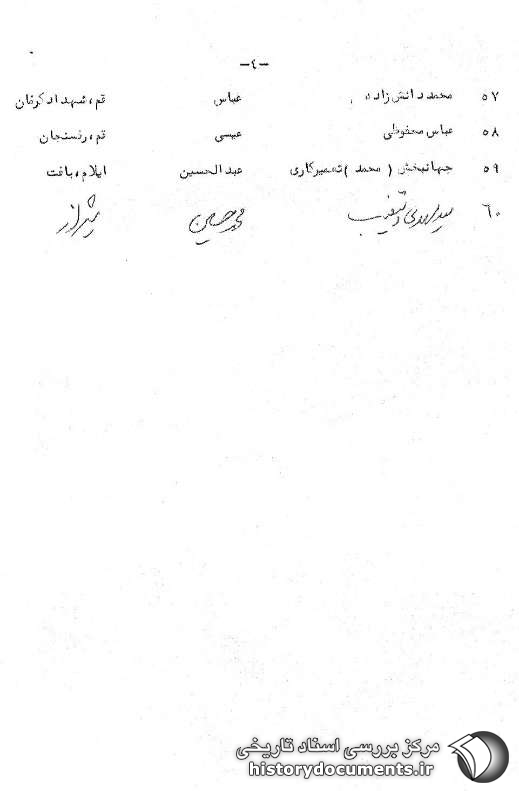 -٤-
٥٧ محمد دانش زاده عباس قم، شهداد کرمان
٥٨ عباس محفوظی عیسی قم، رفسنجان
٥٩ جهانبخش ( محمد ) تعمیرکاری عبدالحسین ایلام، بافت
٦٠ سید مهدی حسین شیراز
مرکز بررسی اسناد تاریخی
historydocuments.ir